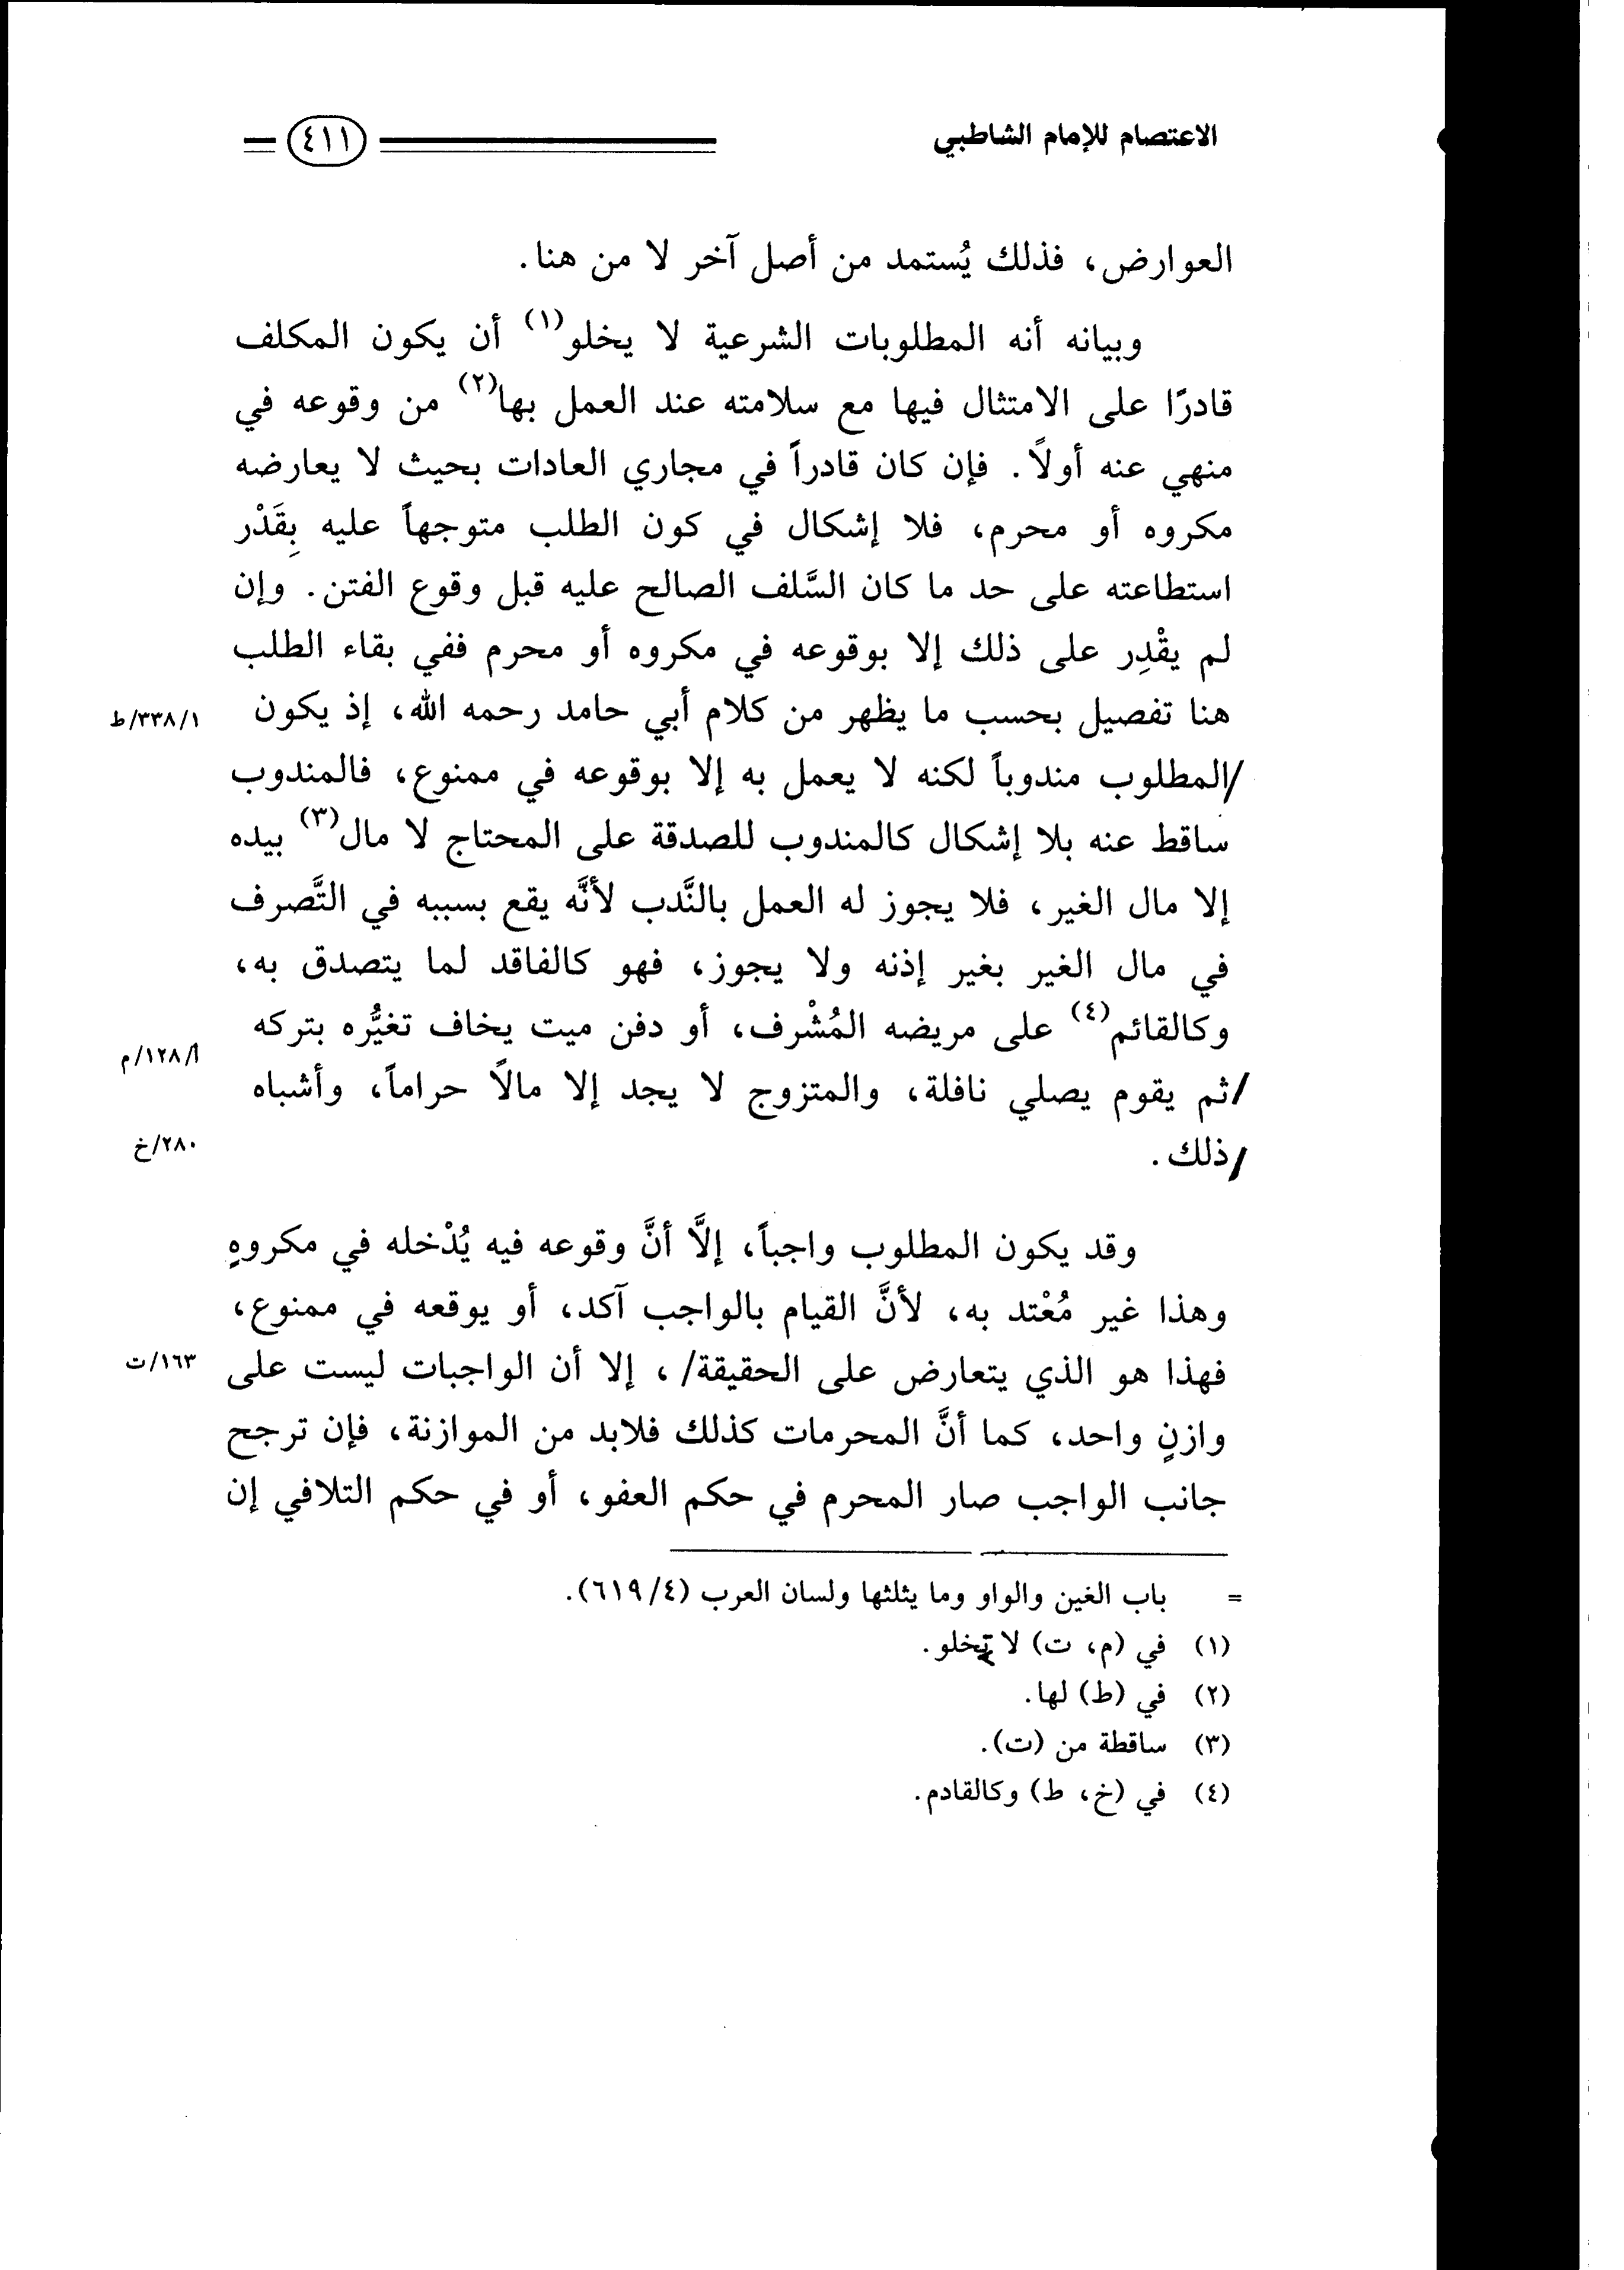 الاعتصام للإمام الشاطبي
٤١١
العوارض، فذلك يُستمد من أصل آخر لا من هنا.
وبيانه أنه المطلوبات الشرعية لا يخلو(١) أن يكون المكلف
قادرًا على الامتثال فيها مع سلامته عند العمل بها(٢) من وقوعه في
منهي عنه أولاً. فإن كان قادراً في مجاري العادات بحيث لا يعارضه
مكروه أو محرم، فلا إشكال في كون الطلب متوجهاً عليه بِقَدْر
استطاعته على حد ما كان السَّلف الصالح عليه قبل وقوع الفتن. وإن
لم يقْدِر على ذلك إلا بوقوعه في مكروه أو محرم ففي بقاء الطلب
هنا تفصيل بحسب ما يظهر من كلام أبي حامد رحمه الله، إذ يكون
٣٣٨/١/ط
/المطلوب مندوباً لكنه لا يعمل به إلا بوقوعه في ممنوع، فالمندوب
ساقط عنه بلا إشكال كالمندوب للصدقة على المحتاج لا مال(٣) بيده
إلا مال الغير، فلا يجوز له العمل بالنَّدب لأنَّه يقع بسببه في التَّصرف
في مال الغير بغير إذنه ولا يجوز، فهو كالفاقد لما يتصدق به،
وكالقائم(٤) على مريضه المُشْرف، أو دفن ميت يخاف تغيُّره بتركه
أ/١٢٨/م
/ثم يقوم يصلي نافلة، والمتزوج لا يجد إلا مالاً حراماً، وأشباه
٢٨٠/خ
/ذلك.
وقد يكون المطلوب واجباً، إلَّا أنَّ وقوعه فيه يُدْخله في مكروهٍ
وهذا غير مُعْتد به، لأنَّ القيام بالواجب آكد، أو يوقعه في ممنوع،
فهذا هو الذي يتعارض على الحقيقة/، إلا أن الواجبات ليست على
١٦٣/ت
وازنٍ واحد، كما أنَّ المحرمات كذلك فلابد من الموازنة، فإن ترجح
جانب الواجب صار المحرم في حكم العفو، أو في حكم التلافي إن
= باب الغين والواو وما يثلثها ولسان العرب (٦١٩/٤).
(١) في (م، ت) لا تخلو.
(٢) في (ط) لها.
(٣) ساقطة من (ت).
(٤) في (خ، ط) وكالقادم.